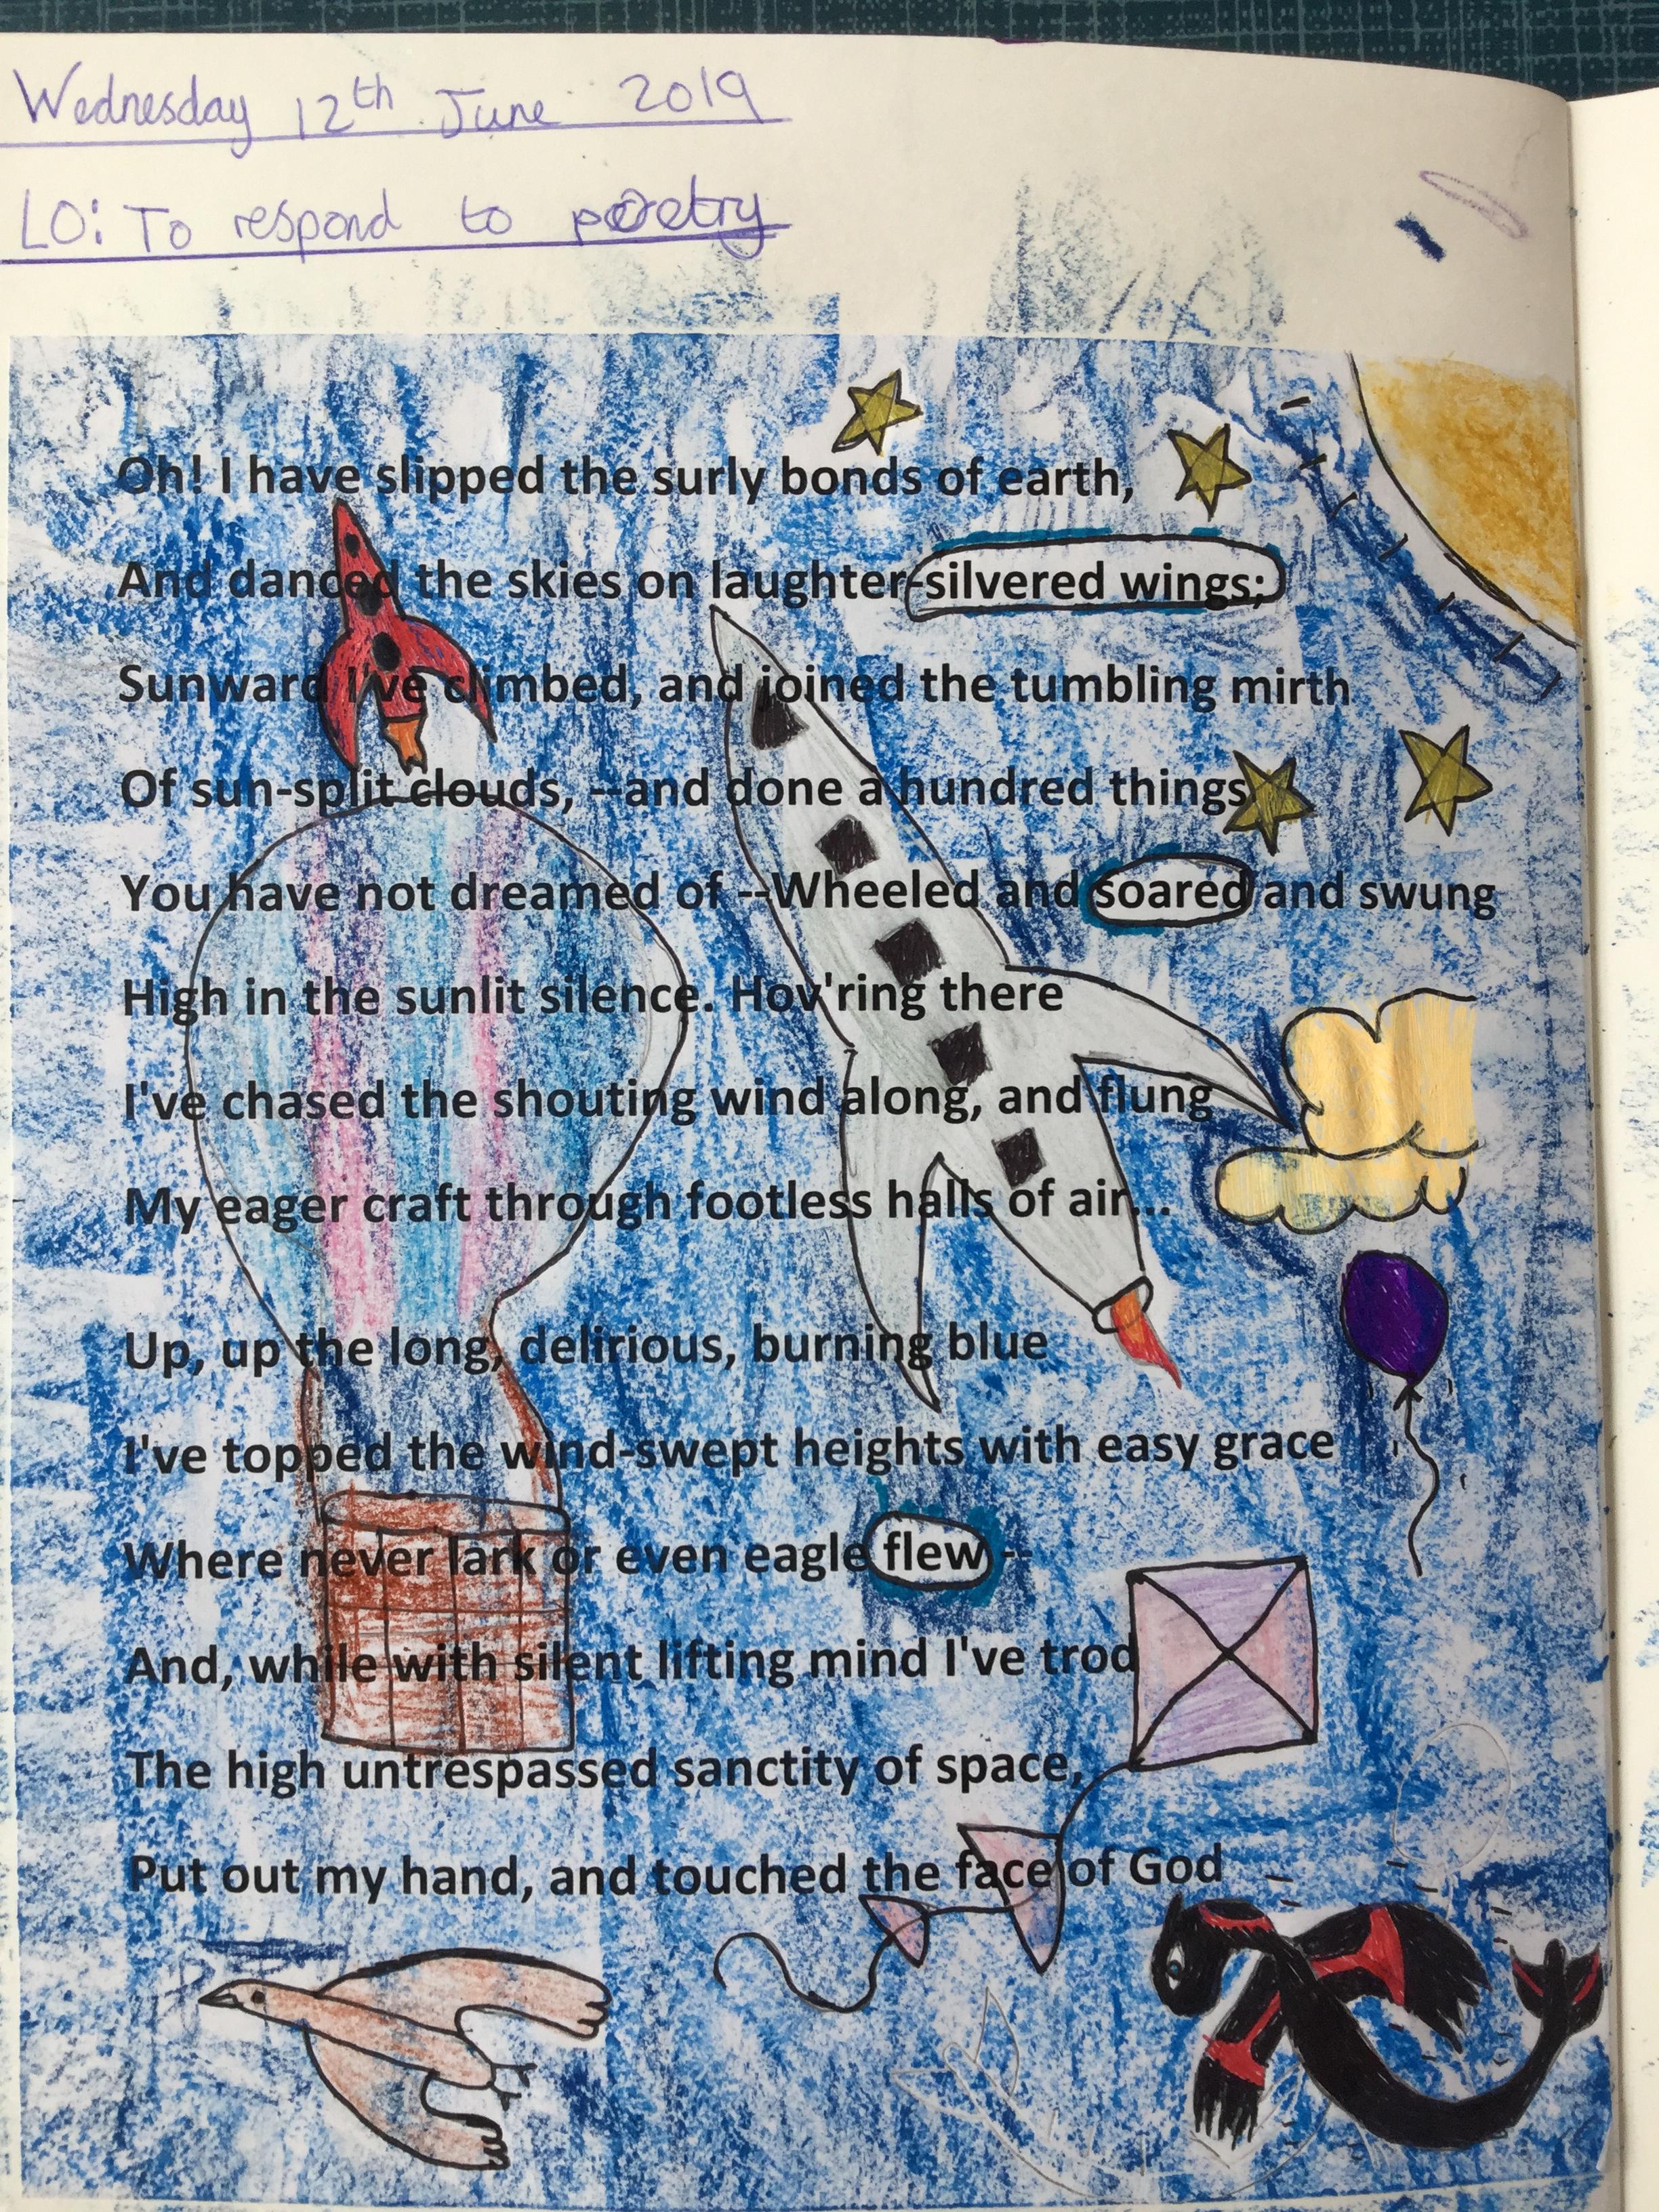 Wednesday 12th June 2019
LO: To respond to poetry
Oh! I have slipped the surly bonds of earth,
And danced the skies on laughter-silvered wings;
Sunward I've climbed, and joined the tumbling mirth
Of sun-split clouds, --and done a hundred things
You have not dreamed of --Wheeled and soared and swung
High in the sunlit silence. Hov'ring there
I've chased the shouting wind along, and flung
My eager craft through footless halls of air...
Up, up the long, delirious, burning blue
I've topped the wind-swept heights with easy grace
Where never lark or even eagle flew --
And, while with silent lifting mind I've trod
The high untrespassed sanctity of space,
Put out my hand, and touched the face of God